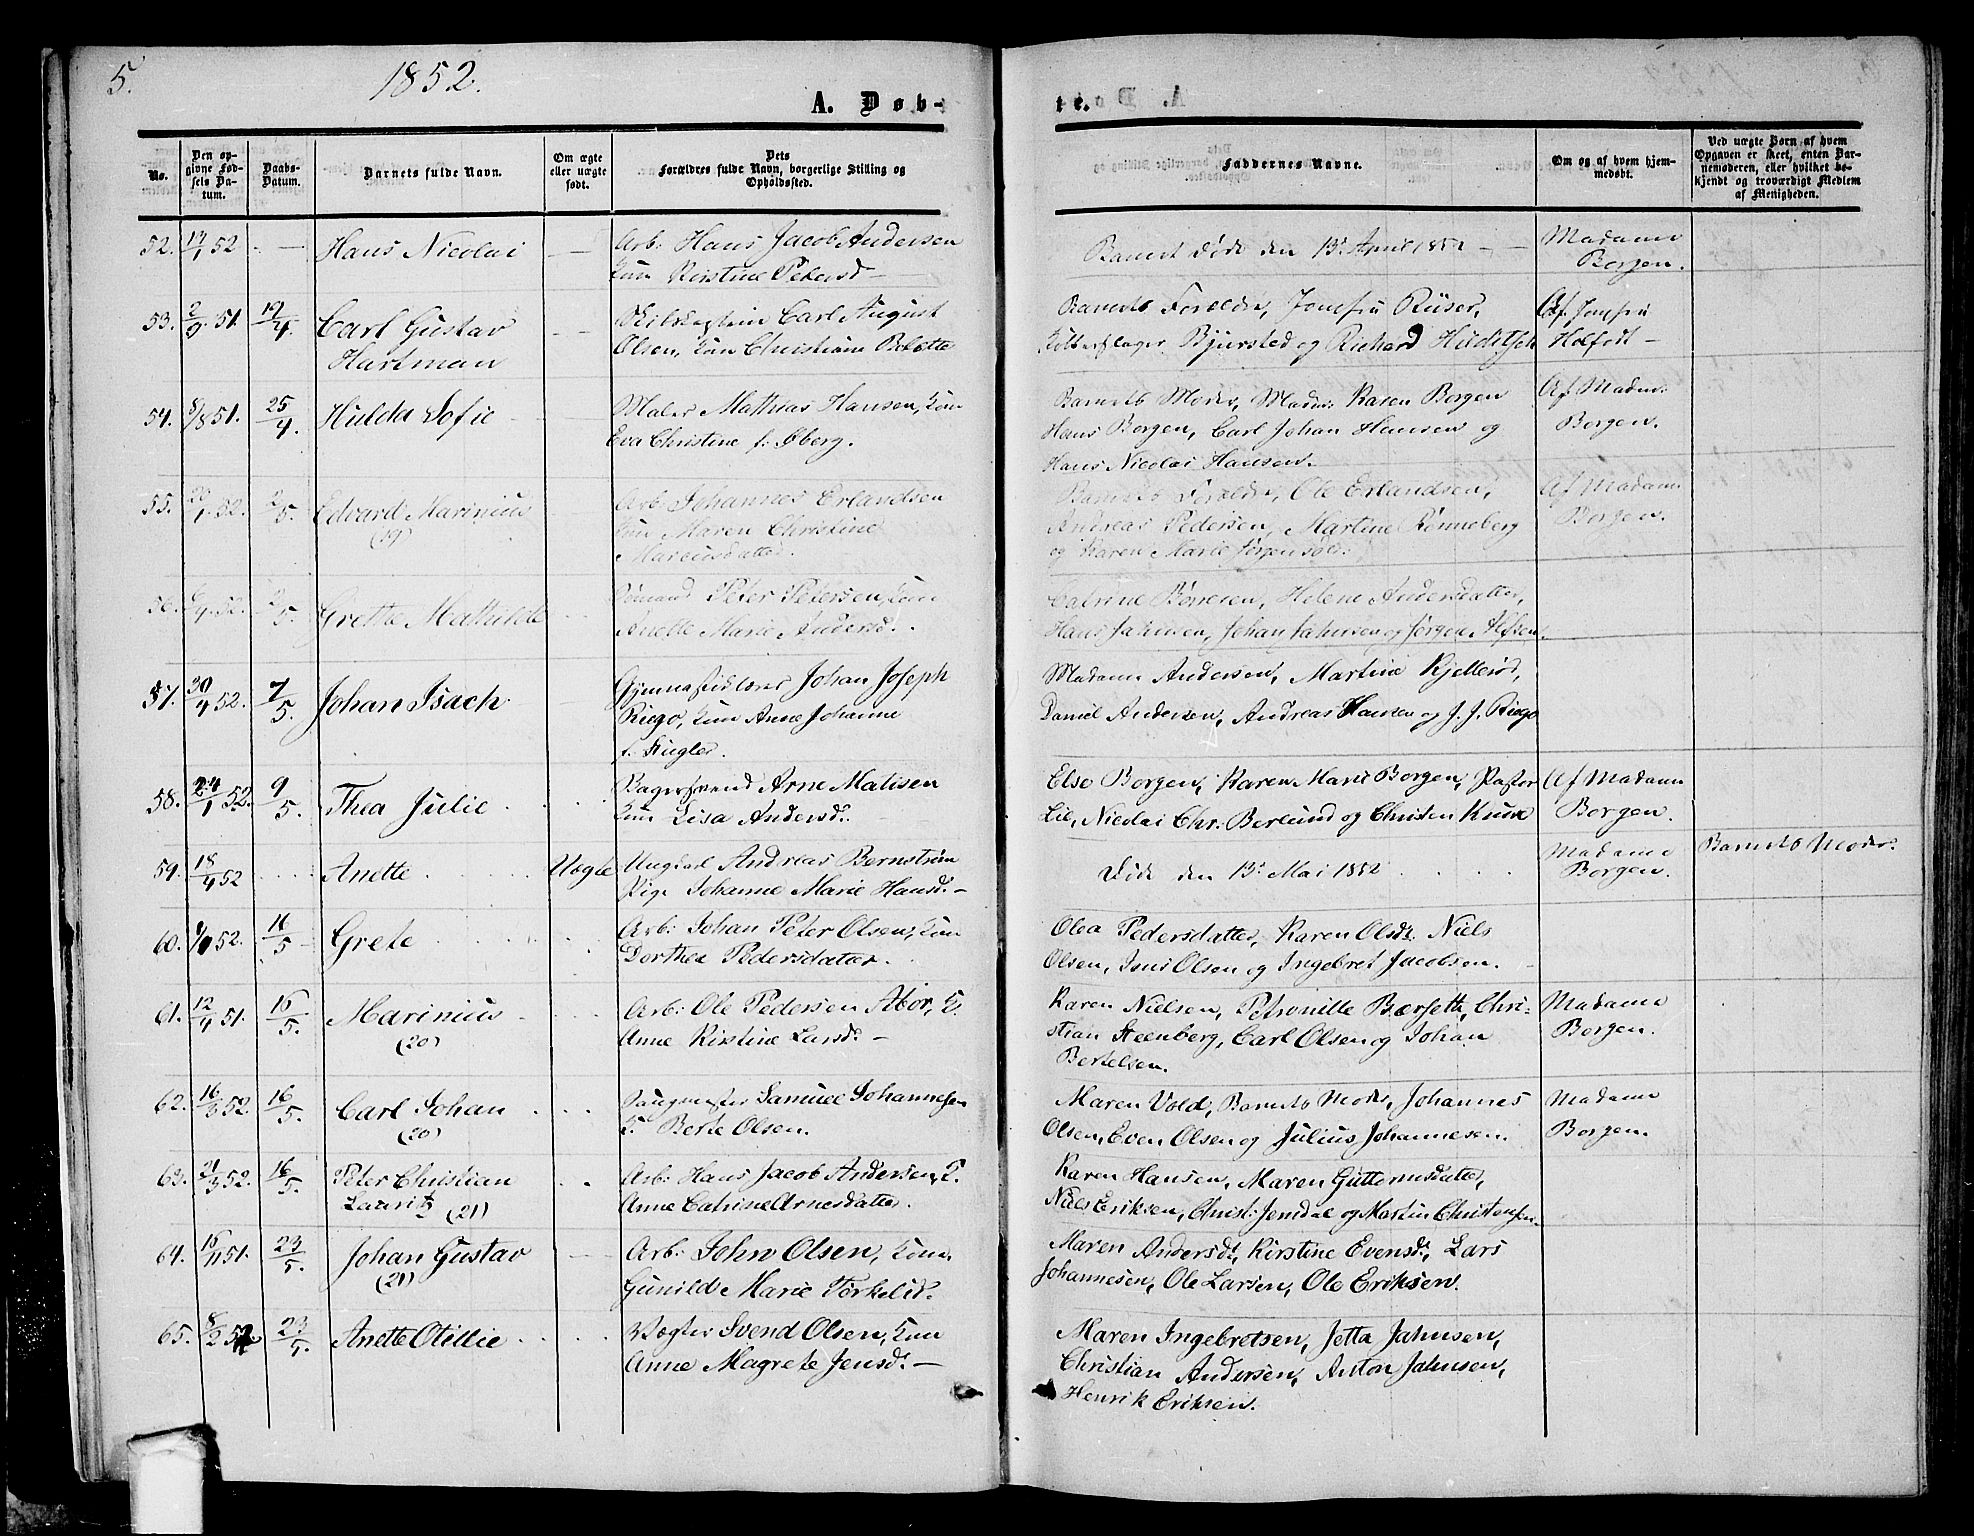 5.
1852.
A. Døb-
te.
No.
Den opgivne Fødsels Datum.
Daabs-Datum.
Barnets fulde Navn.
Om ægte eller uægte født.
Dets Forældres fulde Navn, borgerlige Stilling og Opholdssted.
Faddernes Navne.
Om og af hvem hjemmedøbt.
Ved uægte Børn af hvem Opgaven er skeet, enten Barnemoderen, eller hvilket bekjendt og troværdigt Medlem af Menigheden.
52. 14/1 52 - Hans Nicolai - Arb: Hans Jacob Andersen Barnet døde den 13de April 1852 - Madame
Kone Kirstine Petersd - Borgen.
53. 2/9 51. 19/4. Carl Gustav - Carl August Barnets Foreldre, Jomfru Rüser, Af Jomfru
Hartman Olsen, Kone Christiane Bjursted og Richard Holfeldt -
54. 8/8 51. 25/4 Hulda Sofie - Maler Mathias Hansen, Kone Barnets Moder, Madm: Karen Borgen Af Madm:
Eva Christine f. Øberg. Hans Borgen, Carl Johan Hansen og Borgen.
Hans Nicolai Hansen.
55. 20/1 52. 2/5. Edvard Marinius Arb: Johannes Erlandsen Barnets Foreldre, Ole Erlandsen, Af Madame
(19) Kone Maren Christine Andreas Pedersen, Martine Rønneberg Borgen.
Marcusdatter. og Karen Marie Jørgensdr.
56. 6/4 52. 2/5. Grette Mathilde Sømand Peter Petersen, Kone Catrine Børresen, Helene Andersdatter,
Anette Marie Andersd. Hans Jahnsen, Johan Jahnsen og Jørgen Alfsen.
57. 30/4 52. 7/5. Johan Isach Gymnastiklærer Johan Joseph Madame Andersen, Martine Kjellerød,
Riego, Kone Anne Johanne Daniel Andersen, Andreas Hansen og J. J. Riego
f. Kugler.
58. 24/1 52. 9/5. Thea Julie Bagersvend Arne Matisen Else Borgen, Karen Marie Borgen, Pastor Af Madame
Kone Lisa Andersd. Lie, Nicolai Chr: Berlund og Christen Kruse Borgen.
59. 18/4 52 Anette Uægte Ungkarl Andreas Bernstrøm Døde den 13de Mai 1852 Madame Barnets Moder.
Pige Johanne Marie Hansd. - Borgen.
60. 52. 11/5 Grete Arb: Johan Peter Olsen, Kone Olea Pedersdatter, Karen Olsdr. Niels
Dorthea Pedersdatter. Olsen, Jens Olsen og Ingebret Jacobsen.
61. 12/4 51. 16/5. Marinius Arb: Ole Pedersen Abor, K. Karen Nielsen, Petronille Bærsette, Chri- Madame
(20) Anne Kirstine Larsd. - stian Steenberg, Carl Olsen og Johan Borgen.
Bertelsen.
62. 16/3 52. 16/5. Carl Johan Saugmester Samuel Johannesen Maren Vold, Barnets Moder, Johannes Madame
(20) K. Berte Olsen. Olsen, Even Olsen og Julius Johannesen. Borgen.
63. 21/3 52. 16/5. Peter Christian Arb: Hans Jacob Andersen, K. Karen Hansen, Maren Guttormsdatter,
Lauritz (21) Anne Catrine Arnesdatter. Niels Eriksen, Christ: Jemdal og Martin Christensen.
64. 15/11 51. 23/5. Johan Gustav - Arb: John Olsen, Kone Maren Andersd., Kirstine Evensd., Lars
(21) Gunild Marie Torkelsd. Johannesen, Ole Larsen, Ole Eriksen.
65. 8/2 52 23/5. Anette Otillie Vægter Svend Olsen, Kone Maren Ingebretsen, Jetta Jahnsen,
Anne Magrete Jensd. - Christian Andersen, Anton Jahnsen,
Henrik Eriksen.